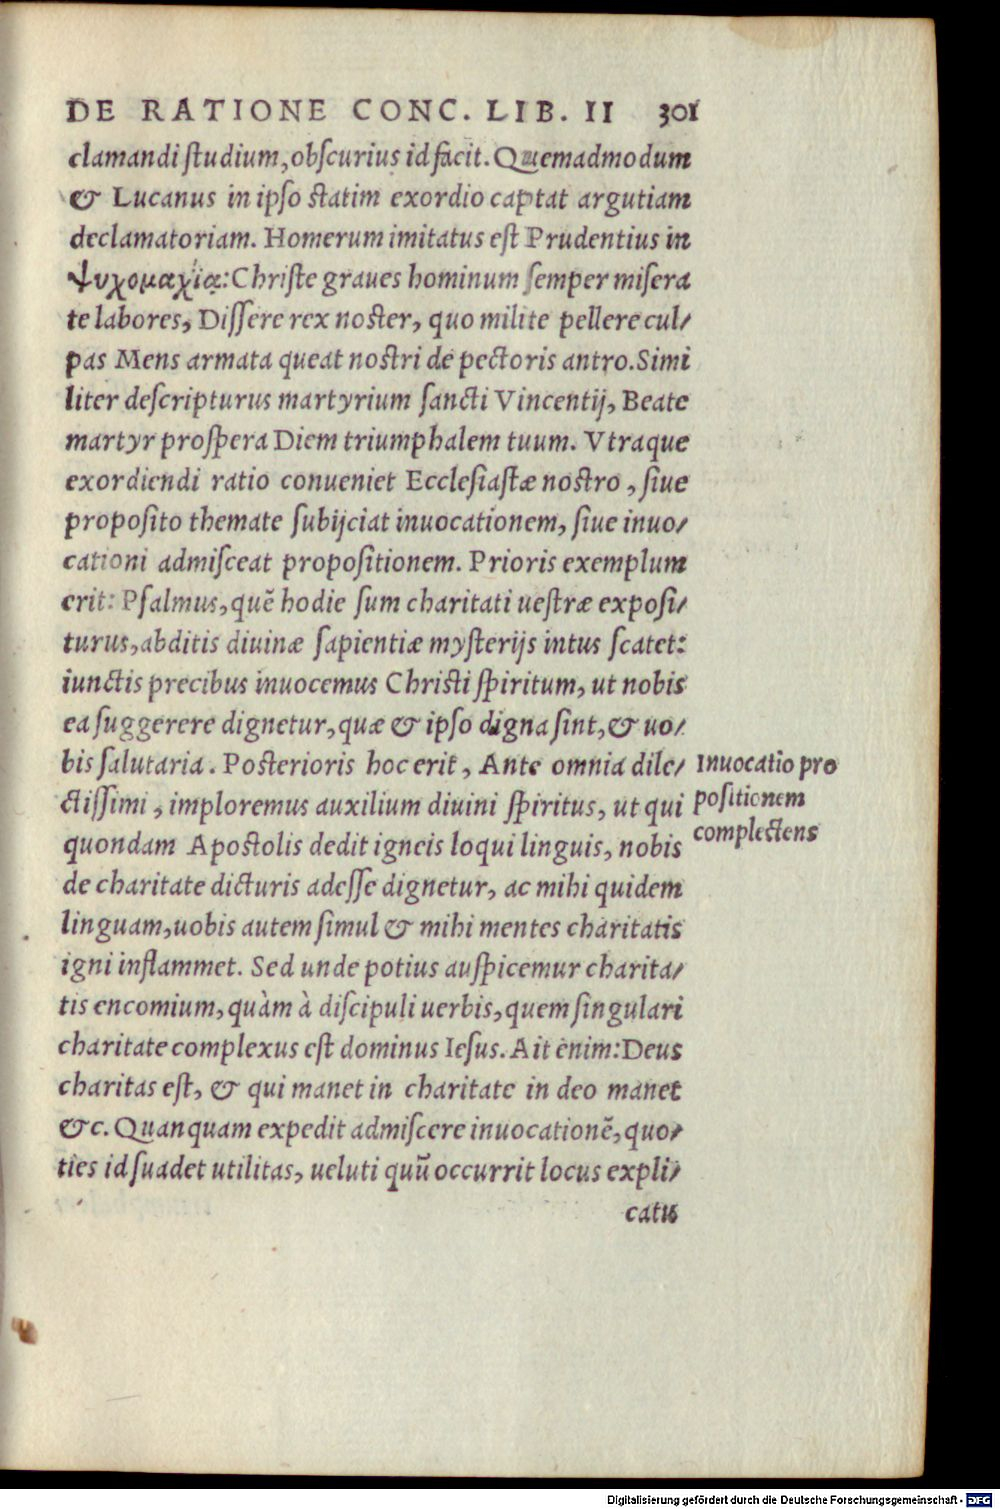 DE RATIONE CONC. LIB. II 301
clamandi studium, obscurius id facit. Quemadmodum
& Lucanus in ipso statim exordio captat argutiam
declamatoriam. Homerum imitatus est Prudentius in
Ψυχομαχίᾳ: Christe graues hominum semper misera
te labores, Dissere rex noster, quo milite pellere cul/
pas Mens armata queat nostri de pectoris antro. Simi
liter descripturus martyrium sancti Vincentij, Beate
martyr prospera Diem triumphalem tuum. Vtraque
exordiendi ratio conueniet Ecclesiastæ nostro, siue
proposito themate subijciat inuocationem, siue inuo/
cationi admisceat propositionem. Prioris exemplum
erit: Psalmus, quẽ hodie sum charitati uestræ exposi/
turus, abditis diuinæ sapientiæ mysterijs intus scatet:
iunctis precibus inuocemus Christi spiritum, ut nobis
ea suggerere dignetur, quæ & ipso digna sint, & uo/
bis salutaria. Posterioris hoc erit, Ante omnia dile/
ctissimi, imploremus auxilium diuini spiritus, ut qui
quondam Apostolis dedit igneis loqui linguis, nobis
de charitate dicturis adesse dignetur, ac mihi quidem
linguam, uobis autem simul & mihi mentes charitatis
igni inflammet. Sed unde potius auspicemur charita/
tis encomium, quàm à discipuli uerbis, quem singulari
charitate complexus est dominus Iesus. Ait enim: Deus
charitas est, & qui manet in charitate in deo manet
&c. Quanquam expedit admiscere inuocationẽ, quo/
ties id suadet utilitas, ueluti quũ occurrit locus expli/
catu
Inuocatio pro
positionem
complectens
Digitalisierung gefördert durch die Deutsche Forschungsgemeinschaft - DFG